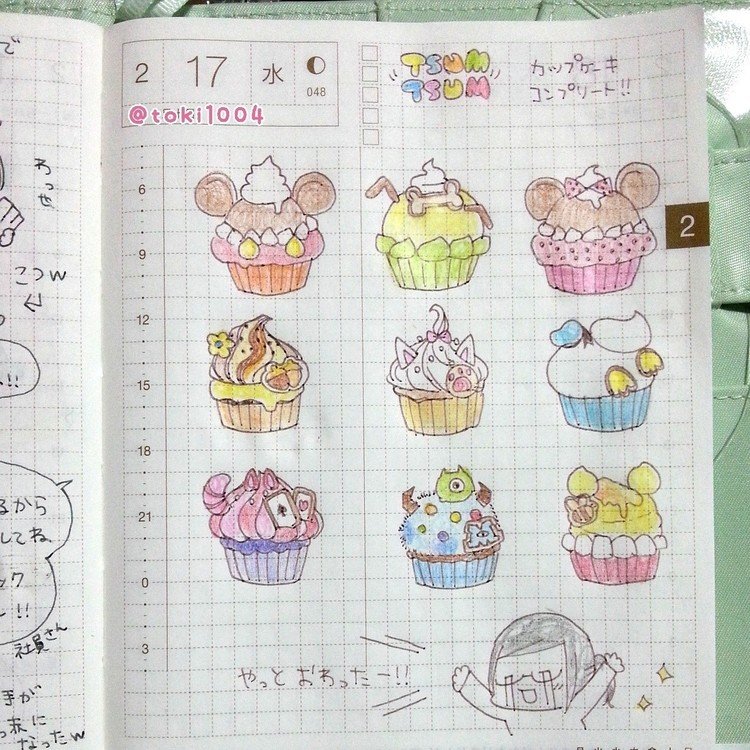 で
わっせ
こつw
!!
るから
してね
ック
!!
社員さん
手が
未に
なったw
2 17 水
048
@toki1004
TSUM
TSUM
カップケーキ
コンプリート!!
2
6
9
12
15
18
21
0
3
M
やっと おわったー!!